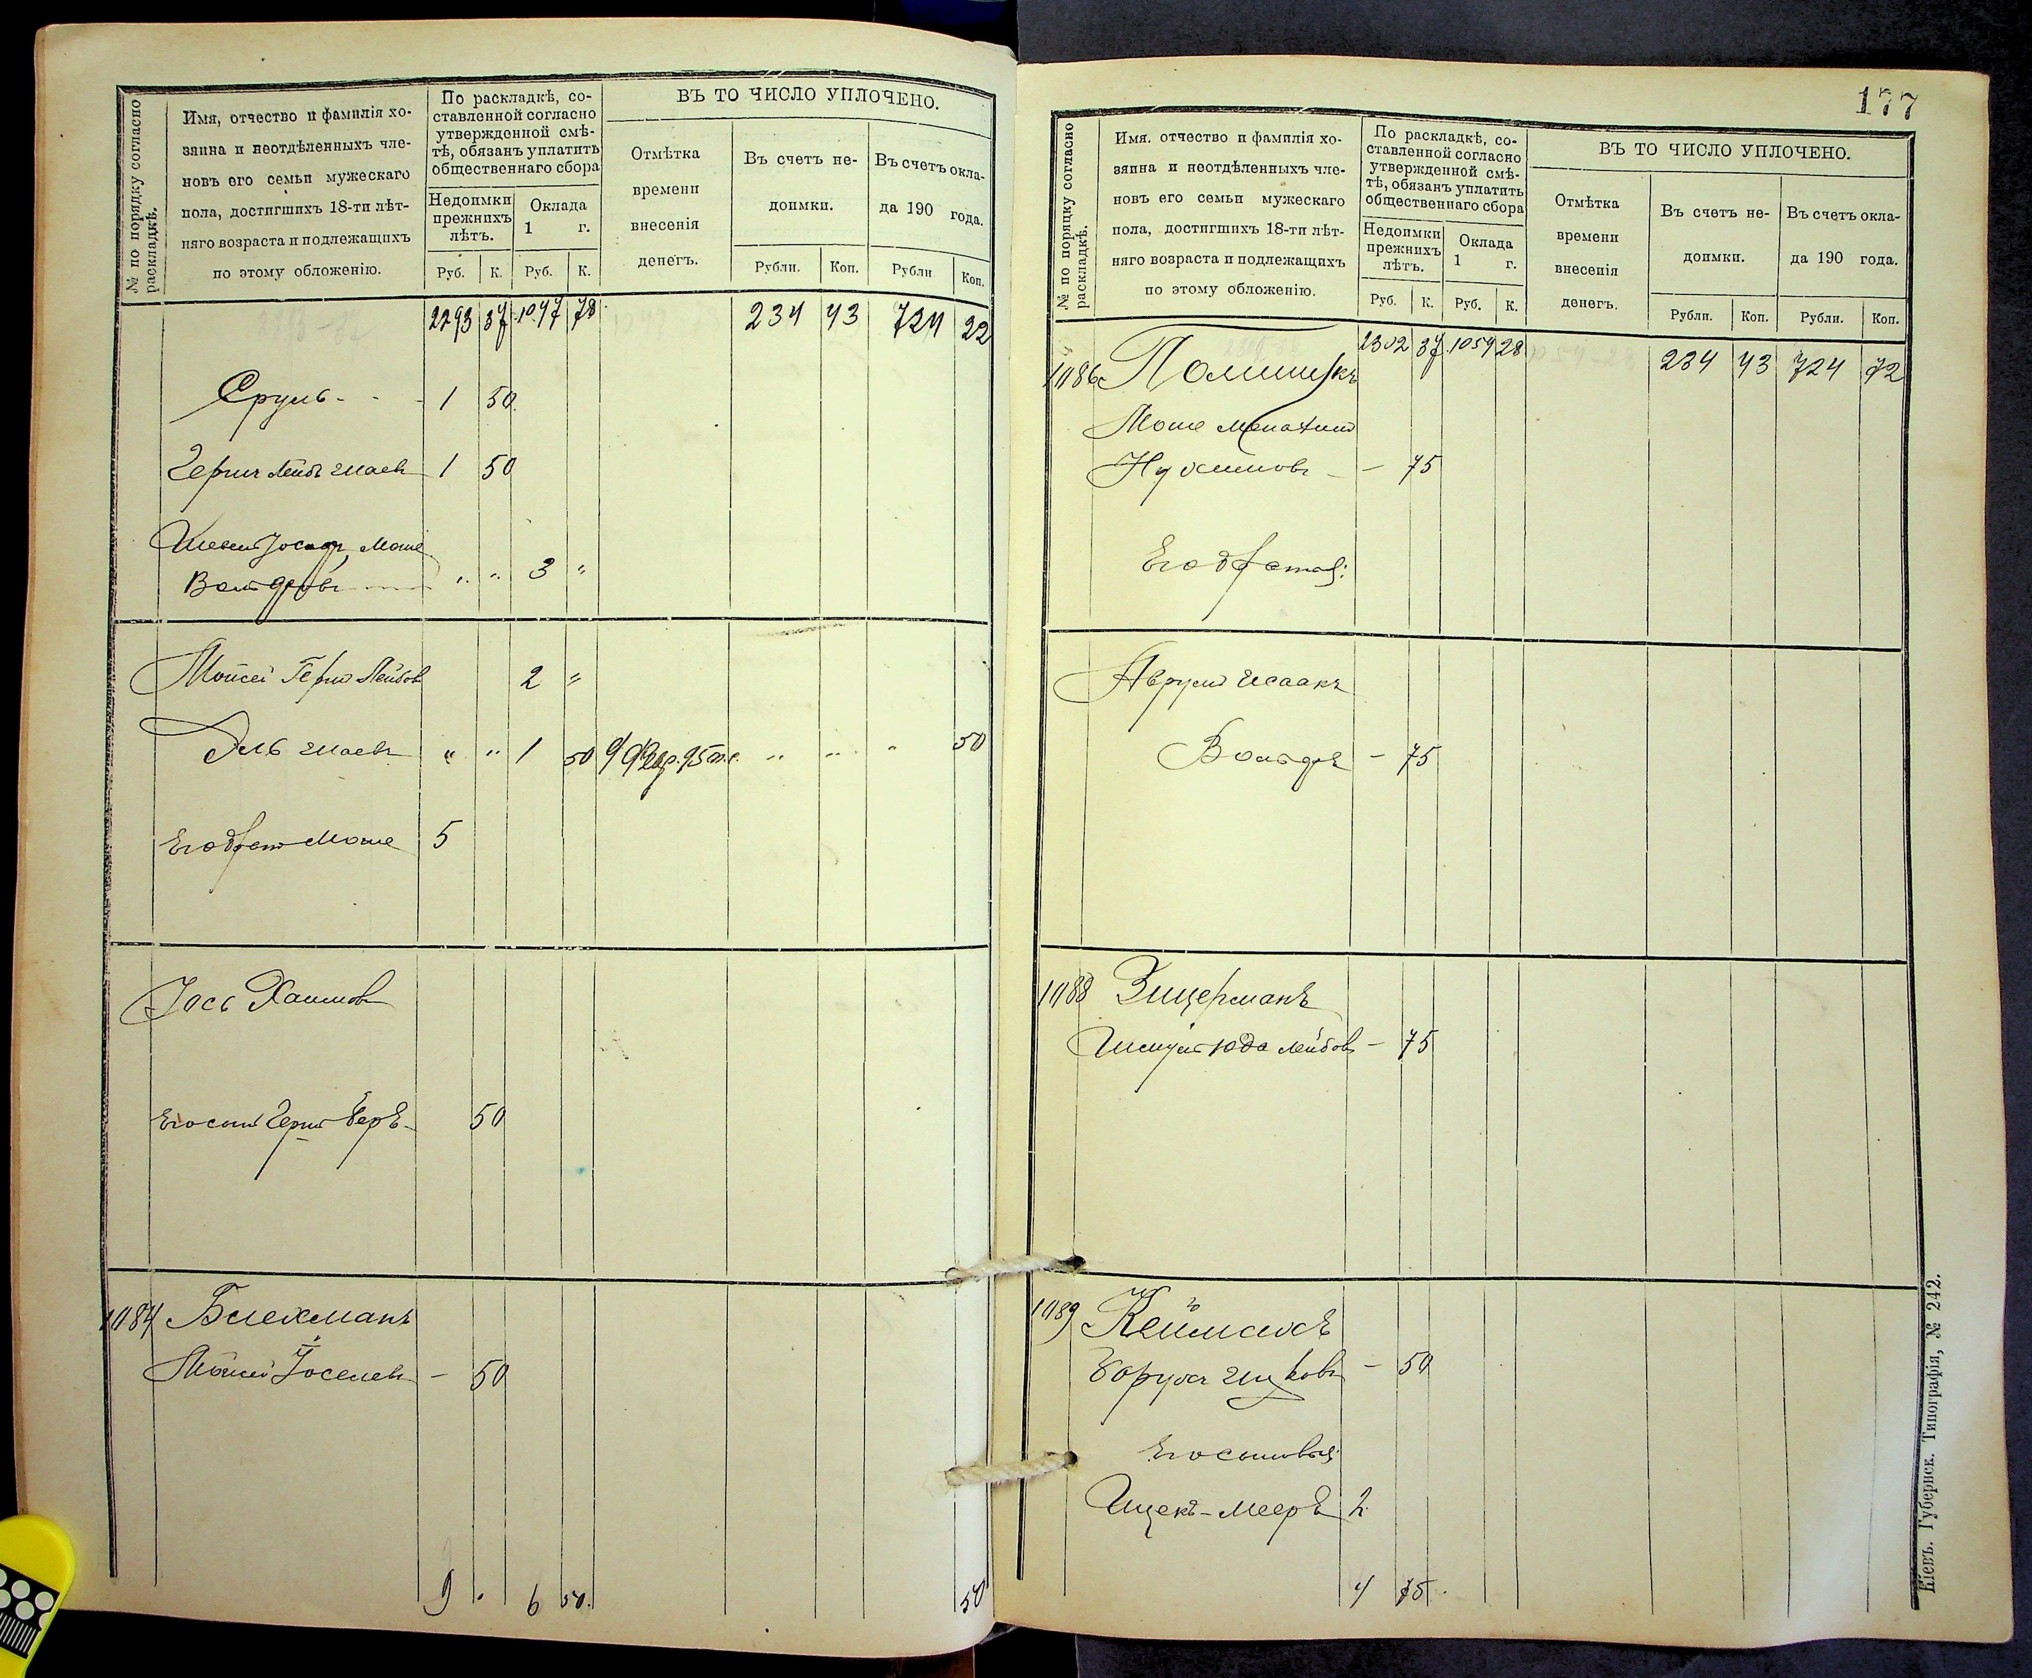 № по порядку согласно раскладкѣ.
Имя, отчество и фамилія хо-
зяина и неотдѣленныхъ чле-
новъ его семьи мужескаго
пола, достигшихъ 18-ти лѣт-
няго возраста и подлежащихъ
по этому обложенію.
По раскладкѣ, со-
ставленной согласно
утвержденной смѣ-
тѣ, обязанъ уплатить
общественнаго сбора
Недоимки
прежнихъ
лѣтъ.
Оклада
1 г.
Руб. К. Руб. К.
ВЪ ТО ЧИСЛО УПЛОЧЕНО.
Отмѣтка
времени
внесенія
денегъ.
Въ счетъ не-
доимки.
Въ счетъ окла-
да 190 года.
Рубли. Коп. Рубли Коп.
2293 37 1047 78 234 43 724 22
Сруль - - - 1 50
Герш Лейбъ 1 50
Іосифъ Моше
Вольфовъ 3 "
Мойсей Герш Лейбов 2 "
" " 1 50 9 50
Его братъ Моше 5
Іось Хаимов
Его сынъ Герш Беръ - 50
1084 Блехманъ
Мойсей Іоселевъ - 50
9 . 6 50. 50
177
№ по порядку согласно раскладкѣ.
Имя. отчество и фамилія хо-
зяина и неотдѣленныхъ чле-
новъ его семьи мужескаго
пола, достигшихъ 18-ти лѣт-
няго возраста и подлежащихъ
по этому обложенію.
По раскладкѣ, со-
ставленной согласно
утвержденной смѣ-
тѣ, обязанъ уплатить
общественнаго сбора
Недоимки
прежнихъ
лѣтъ.
Оклада
1 г.
Руб. К. Руб. К.
ВЪ ТО ЧИСЛО УПЛОЧЕНО.
Отмѣтка
времени
внесенія
денегъ.
Въ счетъ не-
доимки.
Въ счетъ окла-
да 190 года.
Рубли. Коп. Рубли. Коп.
2302 37 1054 28 234 43 724 72
1086
Моше
Нухимовъ - 75
Его братья:
Аврумъ Исаакъ
Вольфъ - 75
1088 Зицерманъ
Шмуль Юда Лейбовъ - 75
1089
Борухъ Ицковъ - 50
Его сыновья:
Ицекъ-Мееръ 2.
4 75.
Кіевъ. Губернск. Типографія, № 242.